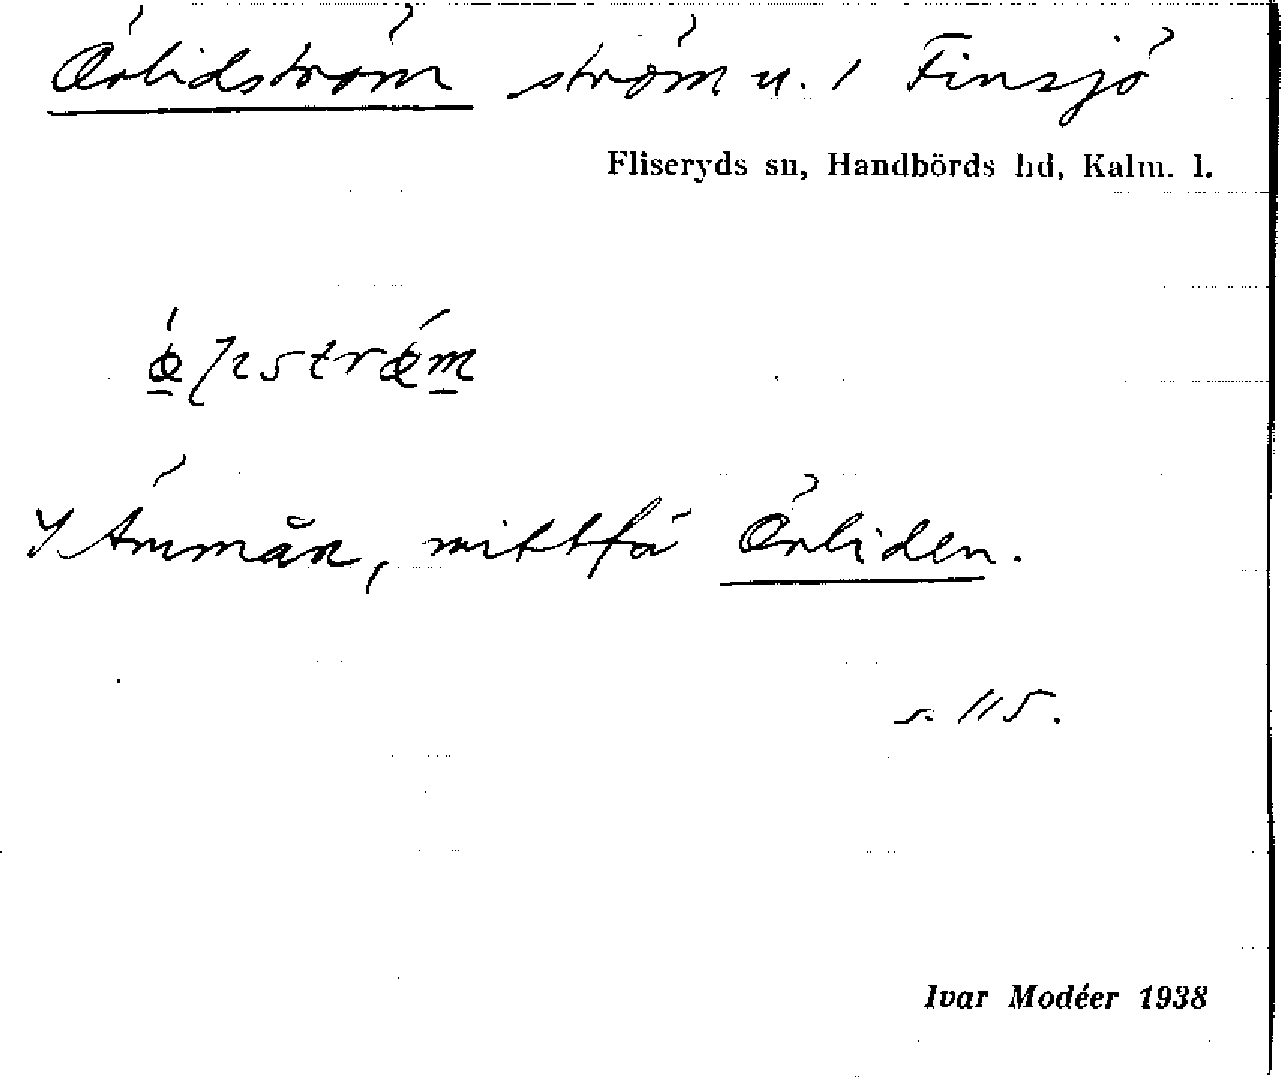 Örlidström ström u. / Finsjö
Fliseryds sn, Handbörds hd, Kalm. l.
I Åmmån, mittför Örliden.
s. 115.
Ivar Modéer 1938